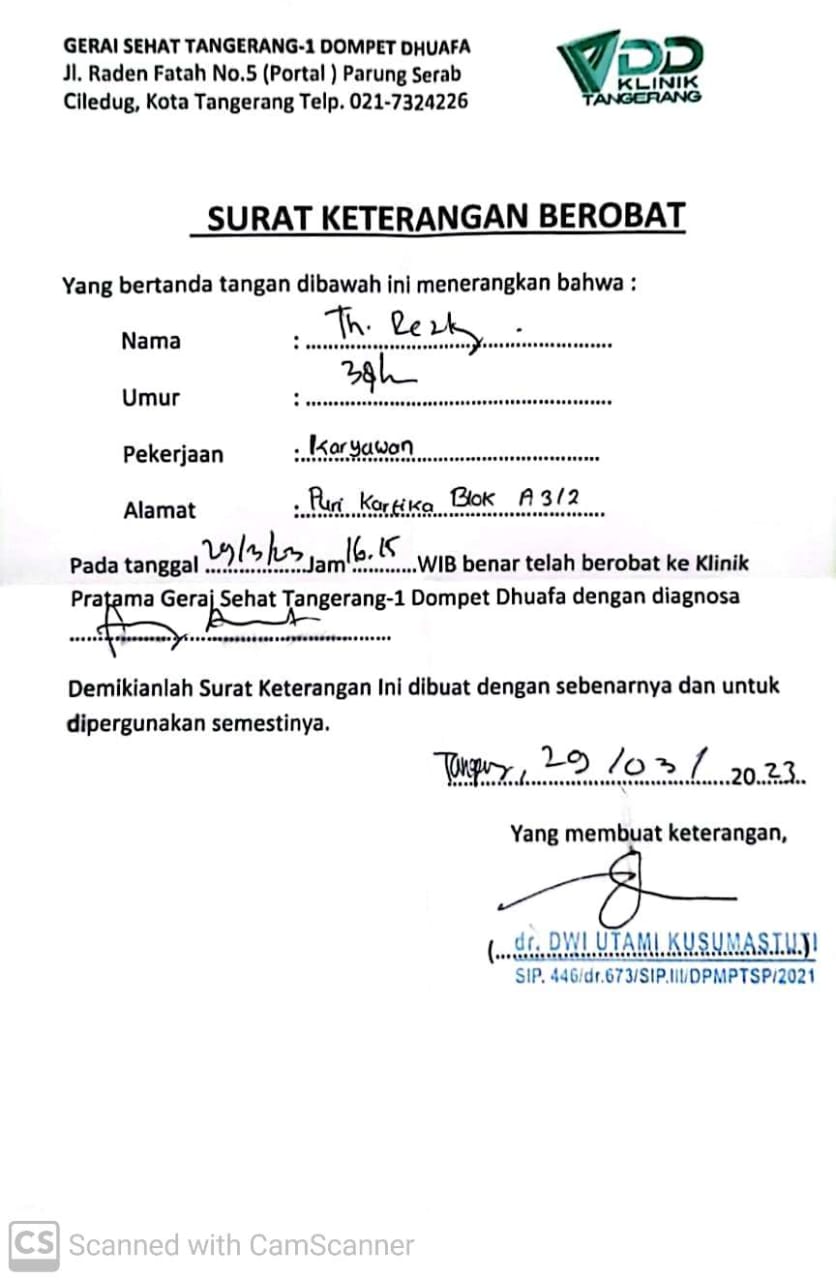 GERAI SEHAT TANGERANG-1 DOMPET DHUAFA
Jl. Raden Fatah No.5 (Portal ) Parung Serab
Ciledug, Kota Tangerang Telp. 021-7324226
DD
KLINIK
TANGERANG
SURAT KETERANGAN BEROBAT
Yang bertanda tangan dibawah ini menerangkan bahwa :
Nama : Th. Rezky
Umur :
Pekerjaan : Karyawan
Alamat : Puri Kartika Blok A 3/2
Pada tanggal 29/3/23 Jam 16.15 WIB benar telah berobat ke Klinik
Pratama Gerai Sehat Tangerang-1 Dompet Dhuafa dengan diagnosa
Demikianlah Surat Keterangan Ini dibuat dengan sebenarnya dan untuk
dipergunakan semestinya.
29/03/2023
Yang membuat keterangan,
(dr. DWI UTAMI KUSUMASTUTI)
SIP. 446/dr.673/SIP.III/DPMPTSP/2021
CS Scanned with CamScanner